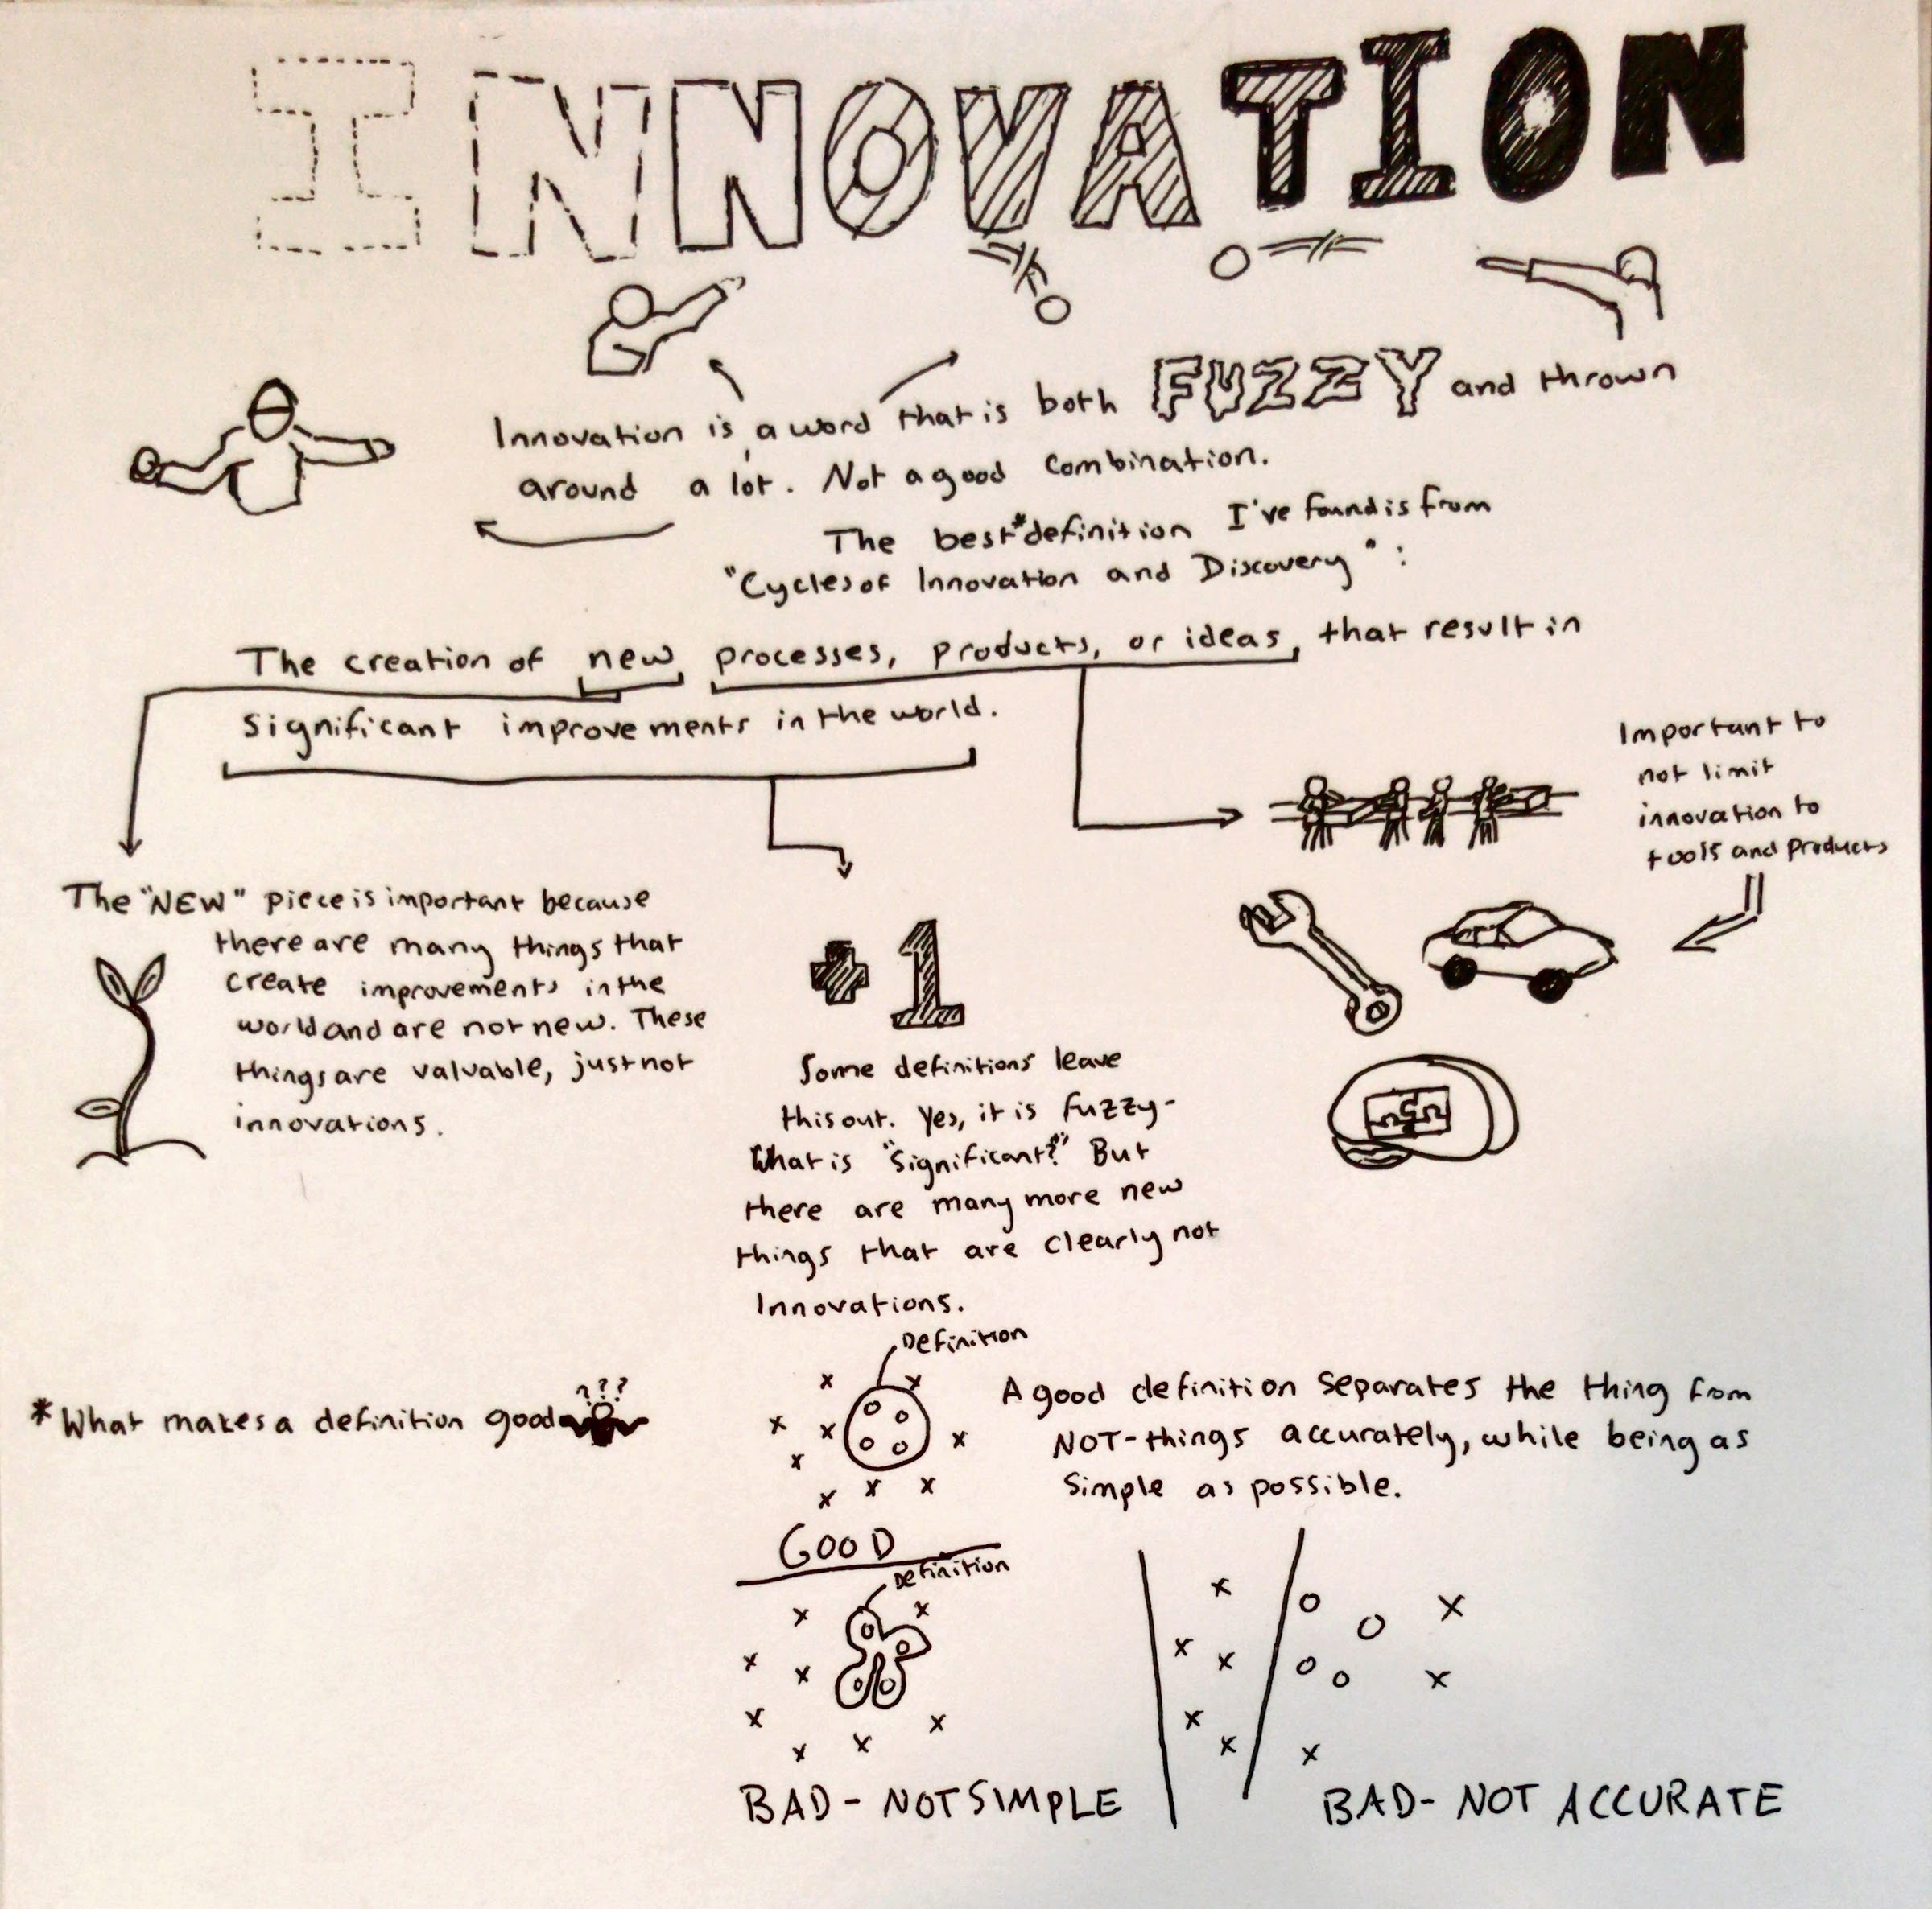 INNOVATION
Innovation is a word that is both FUZZY and thrown
around a lot. Not a good combination.
The best* definition I've found is from
"Cycles of Innovation and Discovery":
The creation of new processes, products, or ideas, that result in
significant improvements in the world.
Important to
not limit
innovation to
tools and products
The "NEW" piece is important because
there are many things that
create improvements in the
world and are not new. These
things are valuable, just not
innovations.
+1
Some definitions leave
this out. Yes, it is fuzzy-
What is "significant?" But
there are many more new
things that are clearly not
Innovations.
*What makes a definition good
???
Definition
A good definition separates the thing from
NOT-things accurately, while being as
simple as possible.
GOOD
Definition
BAD - NOT SIMPLE
BAD - NOT ACCURATE